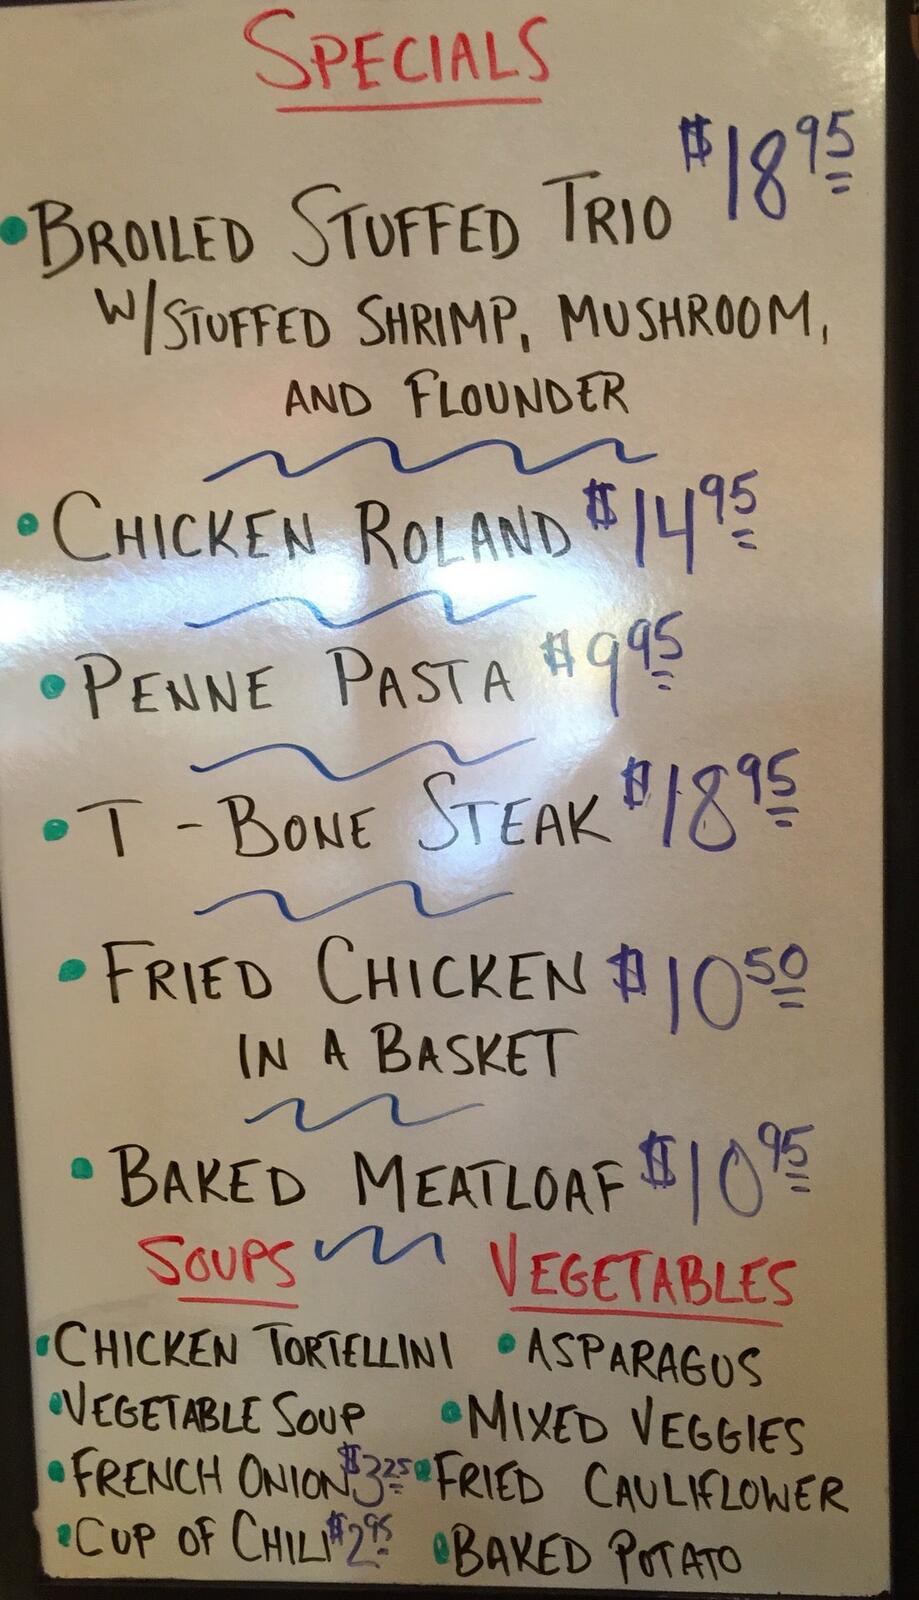 SPECIALS
• BROILED STUFFED TRIO $18.95
W/STUFFED SHRIMP, MUSHROOM,
AND FLOUNDER
• CHICKEN ROLAND $14.95
• PENNE PASTA $9.95
• T-BONE STEAK $18.95
• FRIED CHICKEN $10.50
IN A BASKET
• BAKED MEATLOAF $10.95
SOUPS
• CHICKEN TORTELLINI
• VEGETABLE SOUP
• FRENCH ONION $3.25
• CUP OF CHILI $2.95
VEGETABLES
• ASPARAGUS
• MIXED VEGGIES
• FRIED CAULIFLOWER
• BAKED POTATO